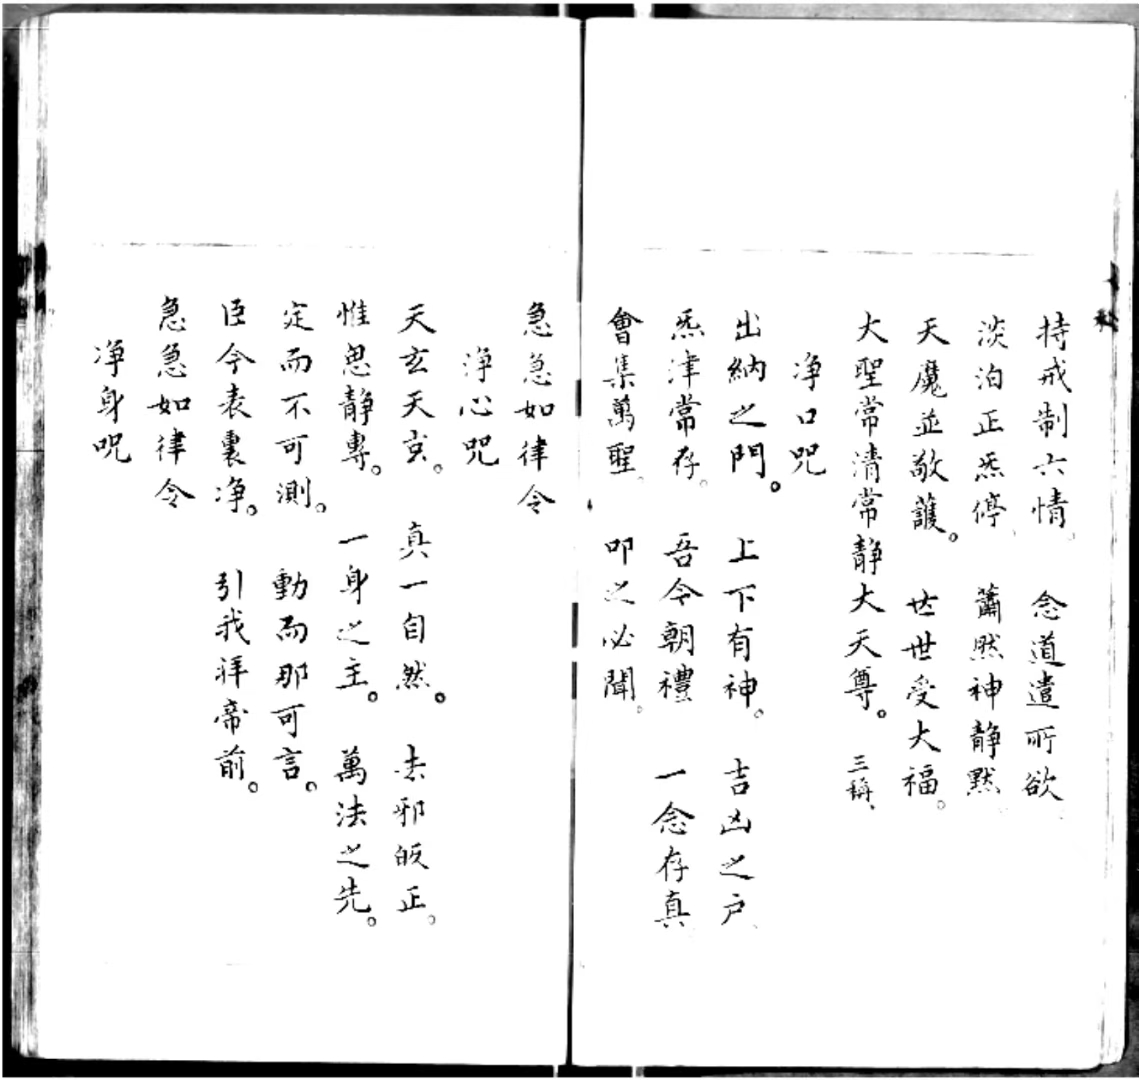 持戒制六情、念道遣所欲、
淡泊正炁停、蕭然神静默、
天魔並敬護。世世受大福。
大聖常清常静大天尊。三稱、
净口咒
出納之門。上下有神。吉凶之户、
炁津常存。吾今朝禮 一念存真、
會集萬聖。叩之必聞。
急急如律令
净心咒
天玄天玄。真一自然。去邪皈正。
惟思静專。一身之主。萬法之先。
定而不可測。動而那可言。
臣今表裏净。引我拜帝前。
急急如律令
净身呪